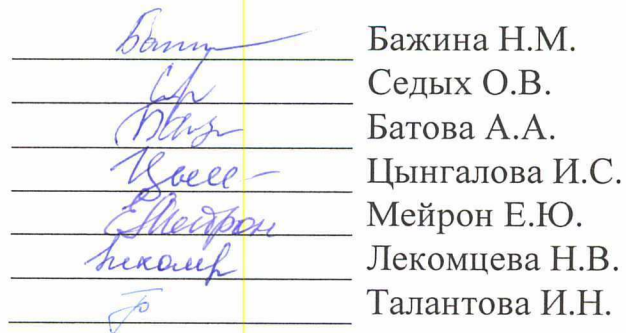 Бажина Н.М.
Седых О.В.
Батова А.А.
Цынгалова И.С.
ЕМейрон Мейрон Е.Ю.
Лекомцева Н.В.
Талантова И.Н.